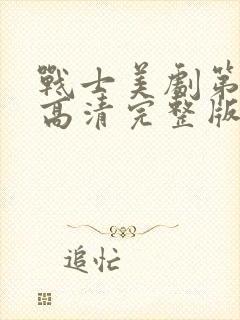 戰士美劇第
高清完整版
追忙